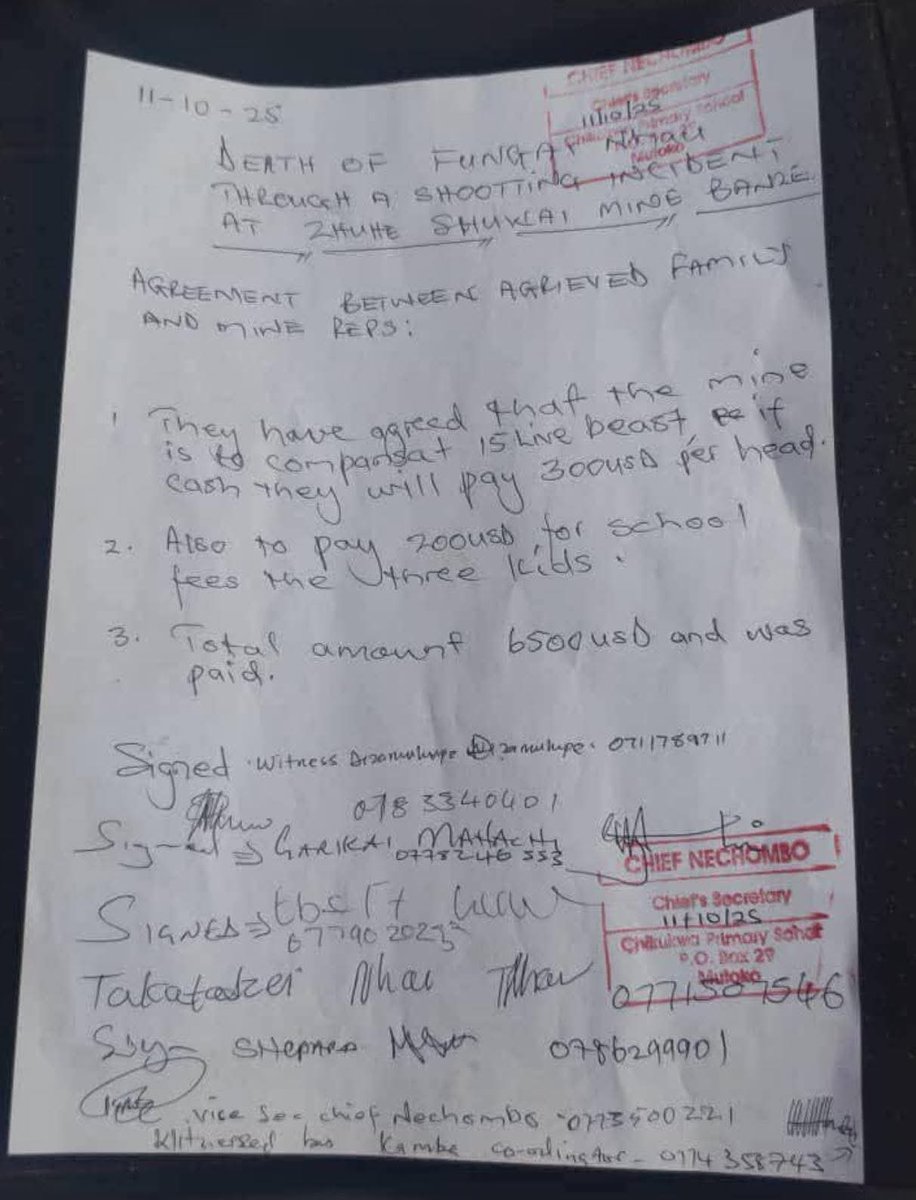 11-10-25
CHIEF NECHOMBO
Chief's Secretary
11/10/25
Primary School
Mutoko
DEATH OF FUNGAI NHAU
THROUGH A SHOOTTING INCIDENT
AT ZHUHE SHUKAI MINE BANZE
AGREEMENT BETWEEN AGRIEVED FAMILY
AND MINE REPS:
1 They have agreed that the mine
is to compansat 15 Live beast, if
cash they will pay 300usd per head.
2. Also to pay 200usd for school
fees the three kids.
3. Total amount 6500usd and was
paid.
Signed Witness 0711789711
0783340401
Signed GARIKAI
0778246553
CHIEF NECHOMBO
Chief's Secretary
11/10/25
Chikukwa Primary School
P.O. Box 29
Mutoko
SIGNED
Takatadzei Nhau
SHEPARD
0786299901
vice Sec chief Nechombo 0773500221
Kambe co-odingtor - 0774358743